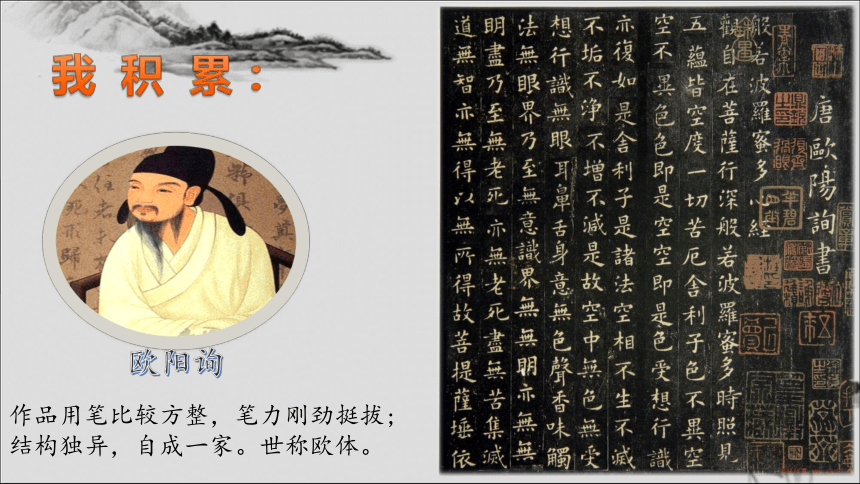 我积累：
欧阳询
作品用笔比较方整，笔力刚劲挺拔；
结构独异，自成一家。世称欧体。
唐歐陽詢書
般若波羅蜜多心經
觀自在菩薩行深般若波羅蜜多時照見
五蘊皆空度一切苦厄舍利子色不異空
空不異色色即是空空即是色受想行識
亦復如是舍利子是諸法空相不生不滅
不垢不淨不增不減是故空中無色無受
想行識無眼耳鼻舌身意無色聲香味觸
法無眼界乃至無意識界無無明亦無無
明盡乃至無老死亦無老死盡無苦集滅
道無智亦無得以無所得故菩提薩埵依